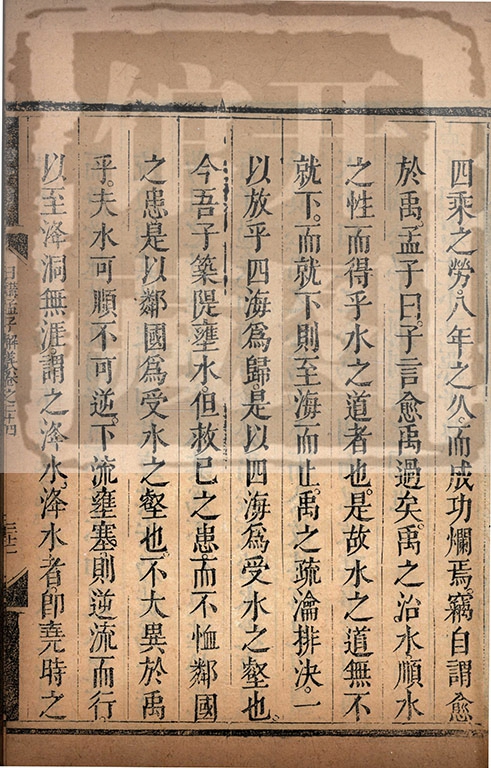 四乘之勞。八年之久。而成功爛焉。竊自謂愈
於禹。孟子曰。子言愈禹過矣。禹之治水。順水
之性而得乎水之道者也。是故水之道無不
就下。而就下則至海而止。禹之疏瀹排決。一
以放乎四海爲歸。是以四海爲受水之壑也。
今吾子築隄壅水。但救已之患而不恤鄰國
之患。是以鄰國爲受水之壑也。不大異於禹
乎。夫水可順不可逆。下流壅塞。則逆流而行
以至洚洞無涯。謂之洚水。洚水者即堯時之
日講孟子解義卷之二十四